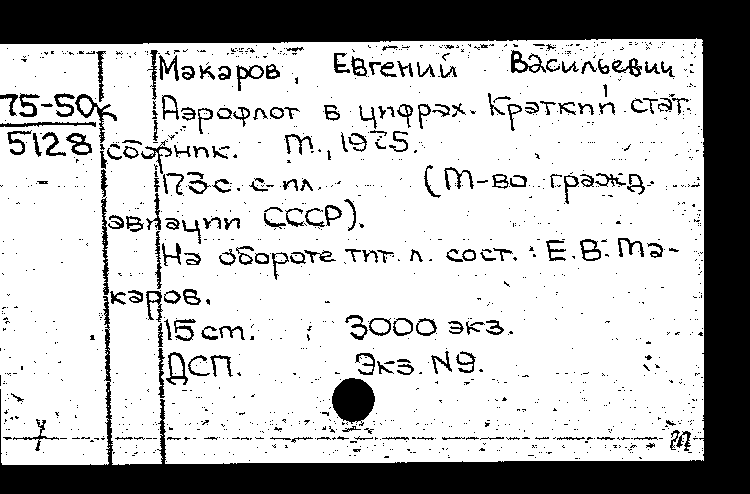 Макаров, Евгений Васильевич
75-50к
5128
Аэрофлот в цифрах. Краткий стат.
сборник. М., 1975.
173 с. с ил. (М-во гражд.
авиации СССР).
На обороте тит. л. сост.: Е.В. Ма-
каров.
15 cm. 3000 экз.
ДСП. Экз. N9.